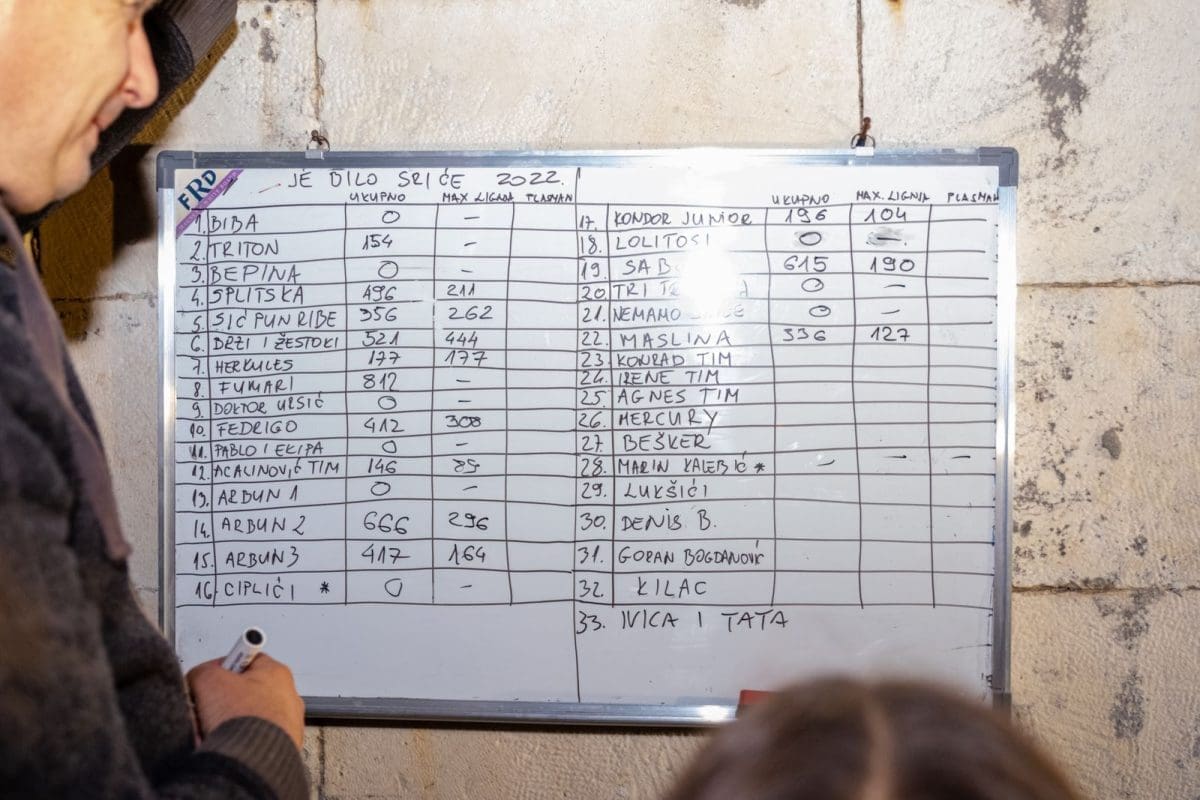 FRD
JE BILO SRIĆE 2022.
UKUPNO MAX LIGNJA PLASMAN
1. BIBA 0 -
2. TRITON 154 -
3. BEPINA 0 -
4. SPLITSKA 496 211
5. SIĆ PUN RIBE 356 262
6. DRŽI I ŽESTOKI 521 444
7. HERKULES 177 177
8. FUMARI 812 -
9. DOKTOR URSIĆ 0 -
10. FEDRIGO 412 308
11. PABLO I EKIPA 0 -
12. ACALINOVIĆ TIM 146 85
13. ARBUN 1 0 -
14. ARBUN 2 666 296
15. ARBUN 3 417 164
16. CIPLIĆI * 0 -
UKUPNO MAX. LIGNJA PLASMAN
17. KONDOR JUNIOR 196 104
18. LOLITOSI 0 -
19. 615 190
20. TRI 0 -
21. NEMAMO 0 -
22. MASLINA 336 127
23 KONRAD TIM
24. IRENE TIM
25. AGNES TIM
26. MERCURY
27. BEŠKER
28. MARIN KALEBIĆ * - - -
29. LUKŠIĆI
30. DENIS B.
31. GORAN BOGDANOVIĆ
32. KILAC
33. IVICA I TATA